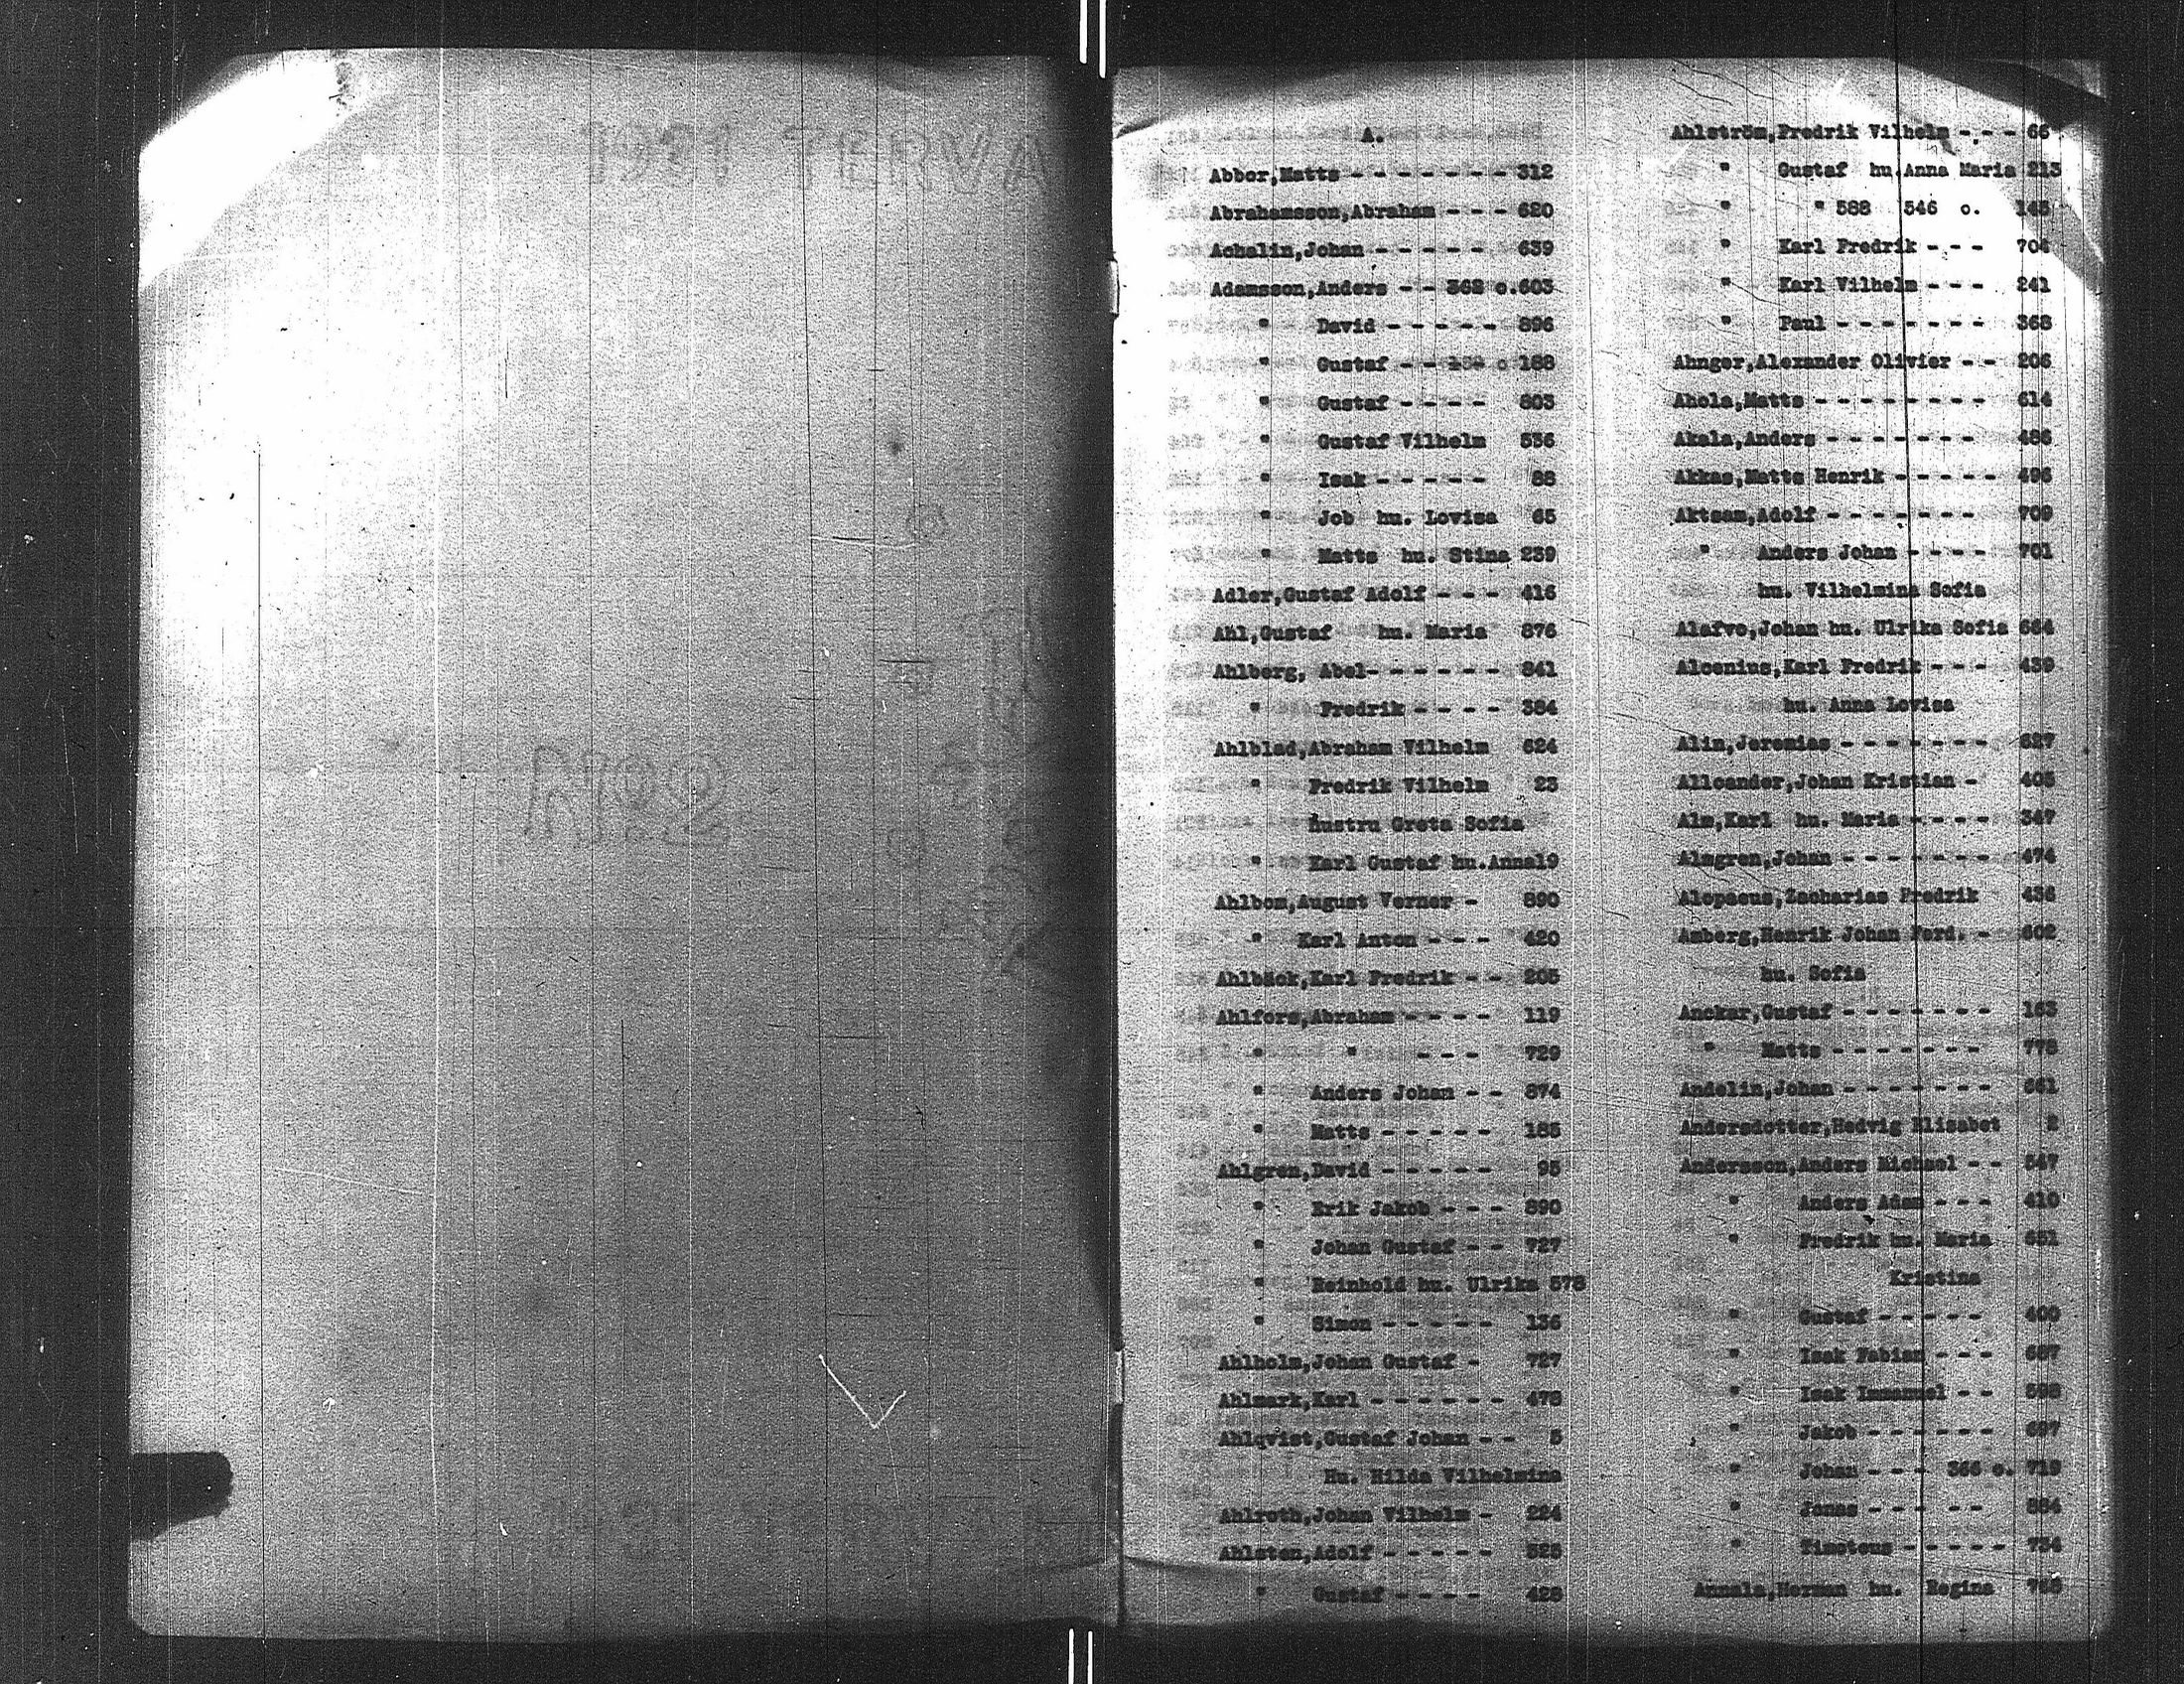 1931 TERVA
A.
Abbor,Matts - - - - - - - - 312
Abrahamsson,Abraham - - - 620
Achalin,Johan - - - - - 639
Adamsson,Anders - - 362 o.603
" David - - - - - 896
" Gustaf - - o 188
" Gustaf - - - - 803
" Gustaf Vilhelm 536
" Isak - - - - - 88
" Job hu. Lovisa 65
" Matts hu. Stina 239
Adler,Gustaf Adolf - - - 416
Ahl,Gustaf hu. Maria 876
Ahlberg, Abel- - - - - - 841
" Fredrik - - - - 384
Ahlblad,Abraham Vilhelm 624
" Fredrik Vilhelm 23
Hustru Greta Sofia
" Karl Gustaf hu.Anna19
Ahlbom,August Verner - 890
" Karl Anton - - - 420
Ahlbäck,Karl Fredrik - - 205
Ahlfors,Abraham - - - - 119
" " - - - 729
" Anders Johan - - 874
" Matts - - - - - 185
Ahlgren,David - - - - - 95
" Erik Jakob - - - 890
" Johan Gustaf - - 727
" Reinhold hu. Ulrika 578
" Simon - - - - - 136
Ahlholm,Johan Gustaf - 727
Ahlmark,Karl - - - - - - 478
Ahlqvist,Gustaf Johan - - 5
Hu. Hilda Vilhelmina
Ahlroth,Johan Vilhelm - 224
Ahlsten,Adolf - - - - - 525
" Gustaf - - - - 428
Ahlström,Fredrik Vilhelm - - - 66
" Gustaf hu.Anna Maria 213
" " 588 546 o. 145
" Karl Fredrik - - - 704
" Karl Vilhelm - - - 241
" Paul - - - - - - - 368
Ahnger,Alexander Olivier - - 206
Ahola,Matts - - - - - - - - 614
Akala,Anders - - - - - - - 486
Akkas,Matts Henrik - - - - - 496
Aktsam,Adolf - - - - - - - 709
" Anders Johan - - - - 701
hu. Vilhelmina Sofia
Alafvo,Johan hu. Ulrika Sofia 664
Alcenius,Karl Fredrik - - - 439
hu. Anna Lovisa
Alin,Jeremias - - - - - - - 627
Alleander,Johan Kristian - 405
Alm,Karl hu. Maria - - - - 347
Almgren,Johan - - - - - - - 474
Alopaeus,Zacharias Fredrik 436
Amberg,Henrik Johan Ferd. - 602
hu. Sofia
Anckar,Gustaf - - - - - - - 163
" Matts - - - - - - - 778
Andelin,Johan - - - - - - - 661
Andersdotter,Hedvig Elisabet 2
Andersson,Anders Michael - - 547
" Anders Adam - - - 410
" Fredrik hu. Maria 651
Kristina
" Gustaf - - - - - 400
" Isak Fabian - - - 687
" Isak Immanuel - - 592
" Jakob - - - - - - 697
" Johan - - - 366 o. 719
" Jonas - - - - - 584
" Timoteus - - - - - 734
Annala,Herman hu. Regina